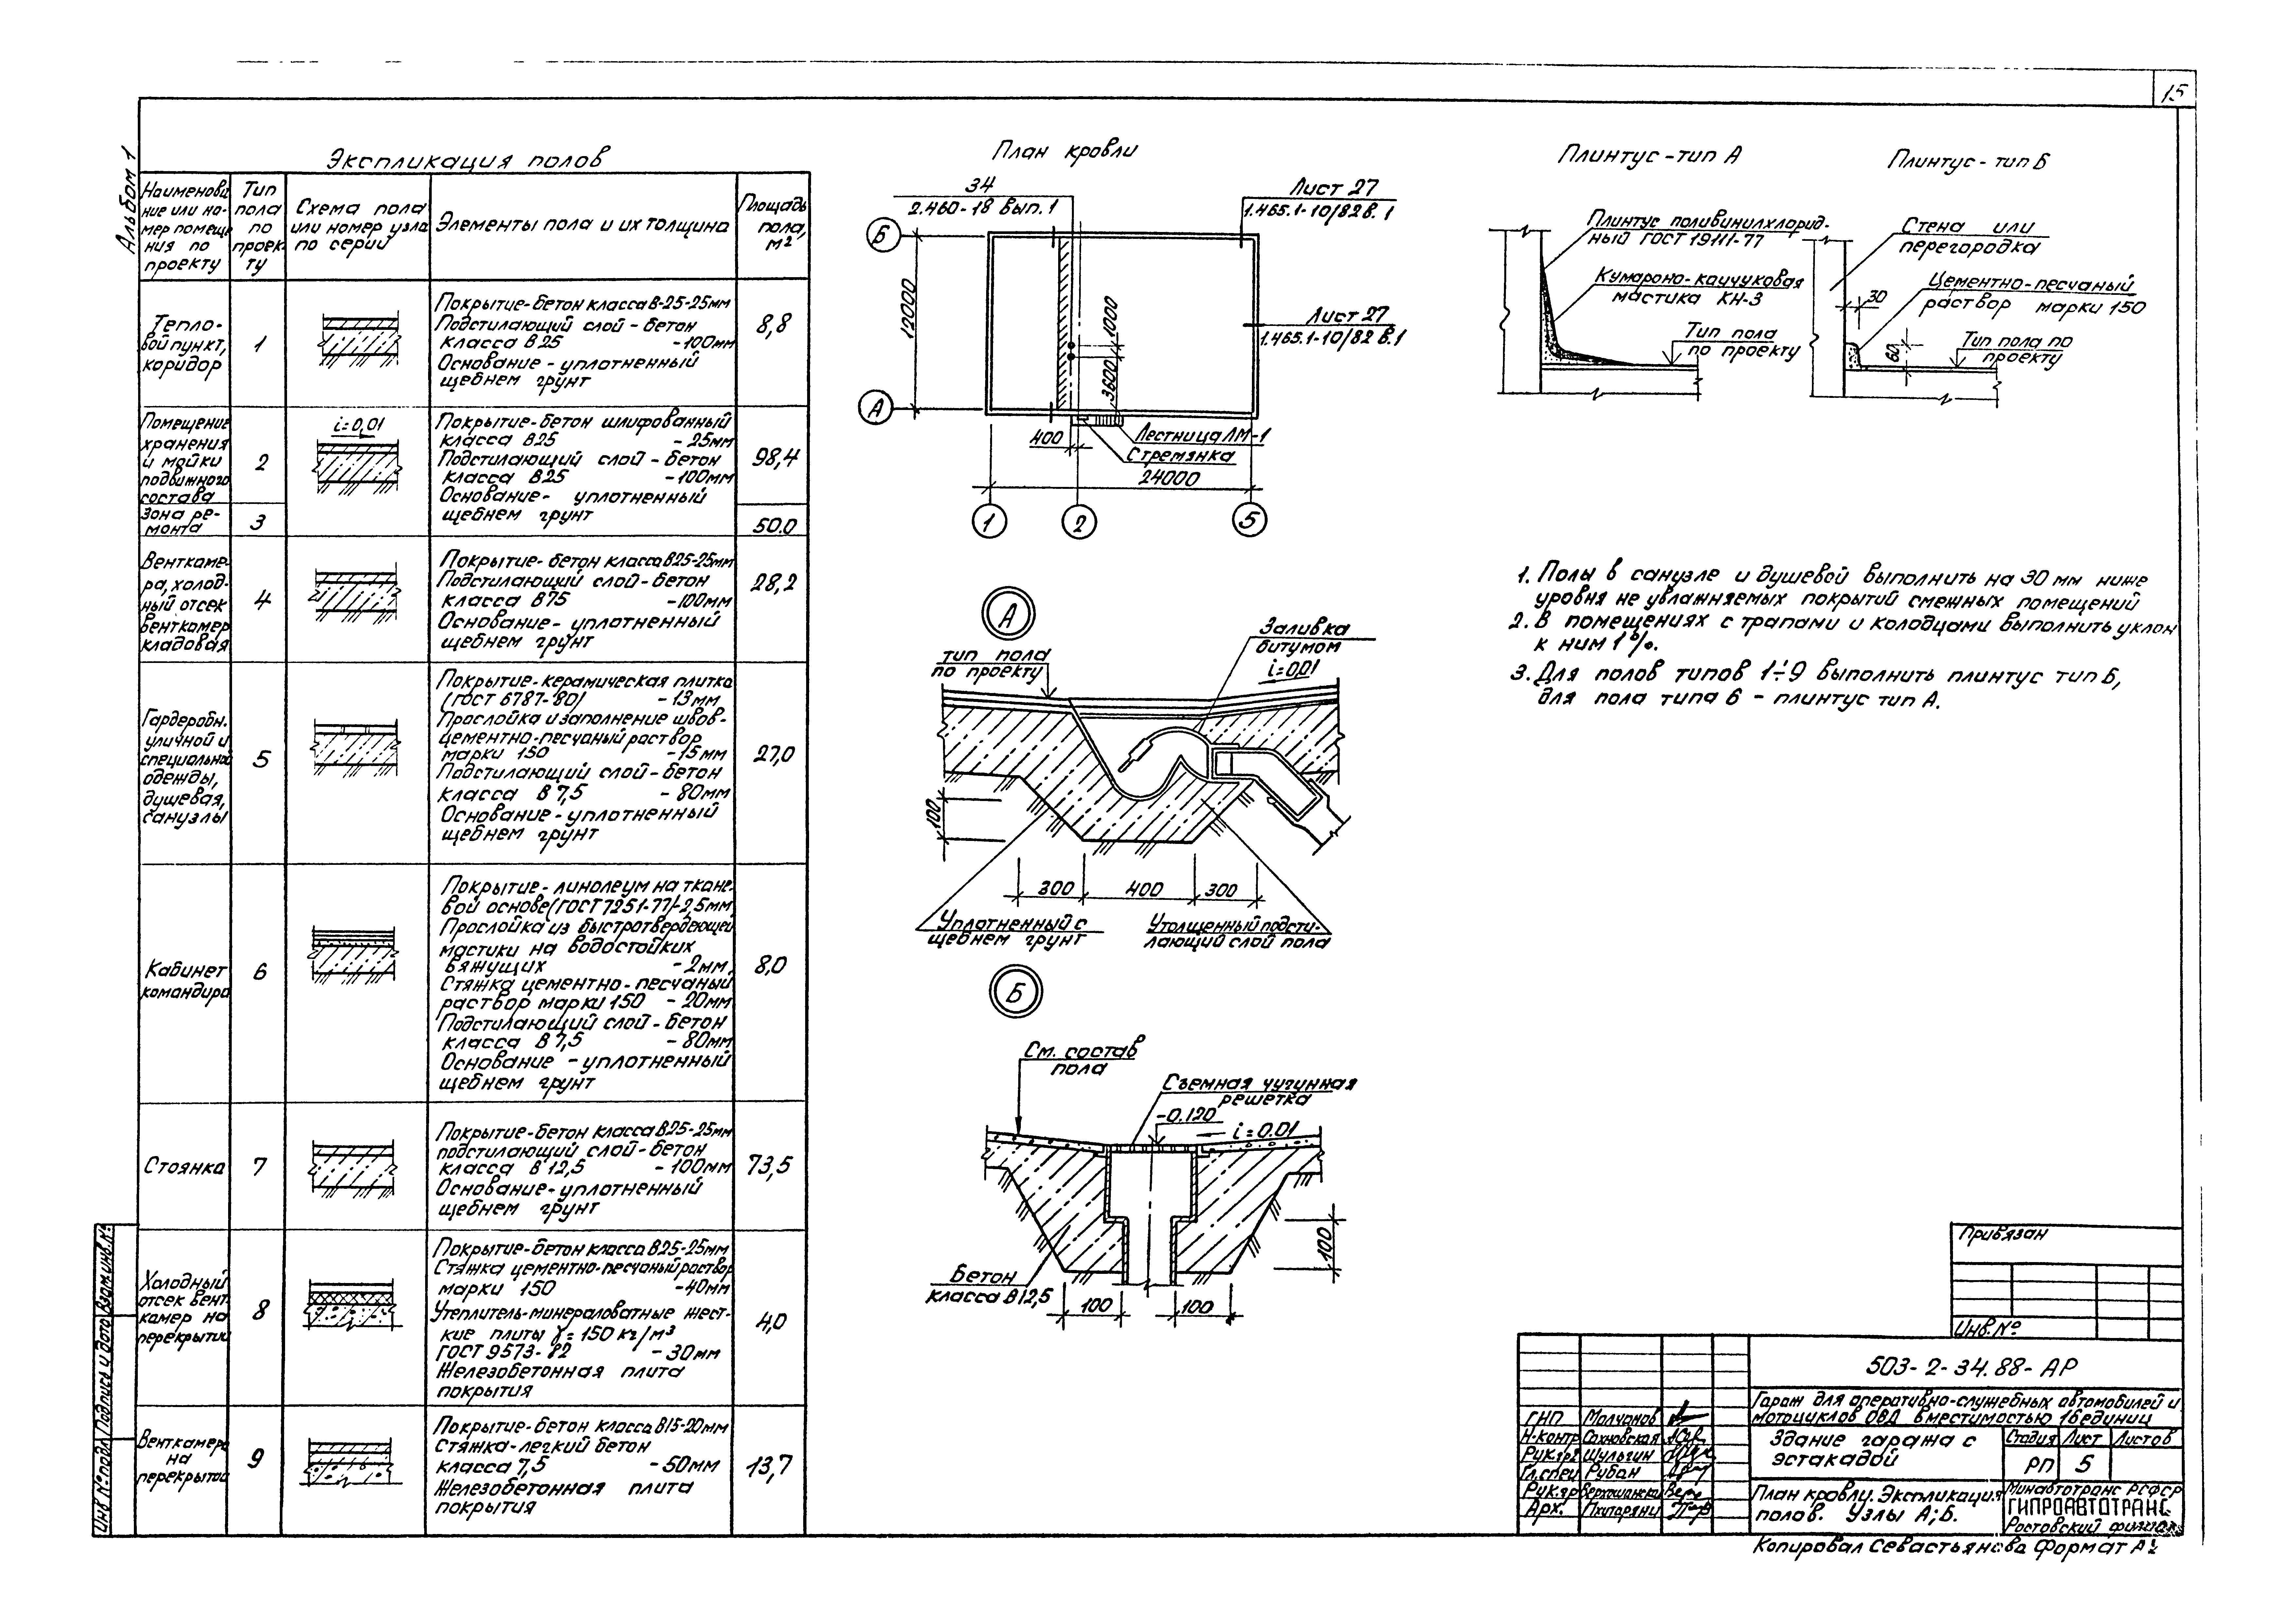 15
Альбом 1
Экспликация полов
Наименова-
ние или но-
мер помеще-
ния по
проекту
Тип
пола
по
проек-
ту
Схема пола
или номер узла
по серии
Элементы пола и их толщина
Площадь
пола,
м²
Тепло-
вой пункт,
коридор
1
Покрытие-бетон класса В-25-25мм
Подстилающий слой - бетон
класса В25 -100мм
Основание - уплотненный
щебнем грунт
8,8
Помещение
хранения
и мойки
подвижного
состава
2
i=0,01
Покрытие-бетон шлифованный
класса В25 - 25мм
Подстилающий слой - бетон
класса В25 -100мм
Основание- уплотненный
щебнем грунт
98,4
Зона ре-
монта
3
50.0
Венткаме-
ра, холод-
ный отсек
венткамер
кладовая
4
Покрытие- бетон класса В25-25мм
Подстилающий слой-бетон
класса В75 -100мм
Основание- уплотненный
щебнем грунт
28,2
Гардеробн.
уличной и
специальной
одежды,
душевая,
санузлы
5
Покрытие-керамическая плитка
(ГОСТ 6787-80) - 13мм
Прослойка и заполнение швов-
цементно-песчаный раствор
марки 150 -15мм
Подстилающий слой-бетон
класса В 7,5 - 80мм
Основание-уплотненный
щебнем грунт
27,0
Кабинет
командира
6
Покрытие- линолеум на ткане-
вой основе (ГОСТ 7251-77)-2,5мм
Прослойка из быстротвердеющей
мастики на водостойких
вяжущих - 2мм
Стяжка цементно-песчаный
раствор марки 150 - 20мм
Подстилающий слой-бетон
класса В 7,5 - 80мм
Основание - уплотненный
щебнем грунт
8,0
Стоянка
7
Покрытие-бетон класса В25-25мм
подстилающий слой-бетон
класса В 12,5 - 100мм
Основание-уплотненный
щебнем грунт
73,5
Холодный
отсек вент-
камер на
перекрытии
8
Покрытие-бетон класса В25-25мм
Стяжка цементно-песчаный раствор
марки 150 -40мм
Утеплитель-минераловатные жест-
кие плиты γ=150 кг/м³
ГОСТ 9573-82 - 30мм
Железобетонная плита
покрытия
4,0
Венткамера
на
перекрытии
9
Покрытие-бетон класса В15-20мм
Стяжка-легкий бетон
класса 7,5 - 50мм
Железобетонная плита
покрытия
13,7
План кровли
34
2.460-18 вып.1
Лист 27
1.465.1-10/82 в.1
Б
12000
1000
3600
Лист 27
1.465.1-10/82 в.1
А
400
Лестница ЛМ-1
Стремянка
24000
1
2
5
А
тип пола
по проекту
Заливка
битумом
i=0,01
100
300
400
300
Уплотненный с
щебнем грунт
Утолщенный подсти-
лающий слой пола
Б
См. состав
пола
Съемная чугунная
решетка
-0.120
i=0.01
Бетон
класса В12,5
100
100
100
Плинтус-тип А
Плинтус поливинилхлорид-
ный ГОСТ 19111-77
Кумароно-каучуковая
мастика КН-3
Тип пола
по проекту
Плинтус-тип Б
Стена или
перегородка
30
Цементно-песчаный
раствор марки 150
60
Тип пола по
проекту
1. Полы в санузле и душевой выполнить на 30 мм ниже
уровня не увлажняемых покрытий смежных помещений
2. В помещениях с трапами и колодцами выполнить уклон
к ним 1%.
3. Для полов типов 1÷9 выполнить плинтус тип Б,
для пола типа 6 - плинтус тип А.
Привязан
Инв.№
503-2-34.88-АР
Гараж для оперативно-служебных автомобилей и
мотоциклов ОВД вместимостью 16 единиц
ГИП Молчанов
Н.контр Сахновская
Рук.гр2 Шульгин
Гл.спец Рубан
Рук.гр
Арх.
Здание гаража с
эстакадой
Стадия Лист Листов
РП 5
План кровли. Экспликация
полов. Узлы А; Б.
Минавтотранс РСФСР
ГИПРОАВТОТРАНС
Ростовский филиал
Копировал Севастьянова Формат А2
Инв № подл Подпись и дата Взам.инв.№